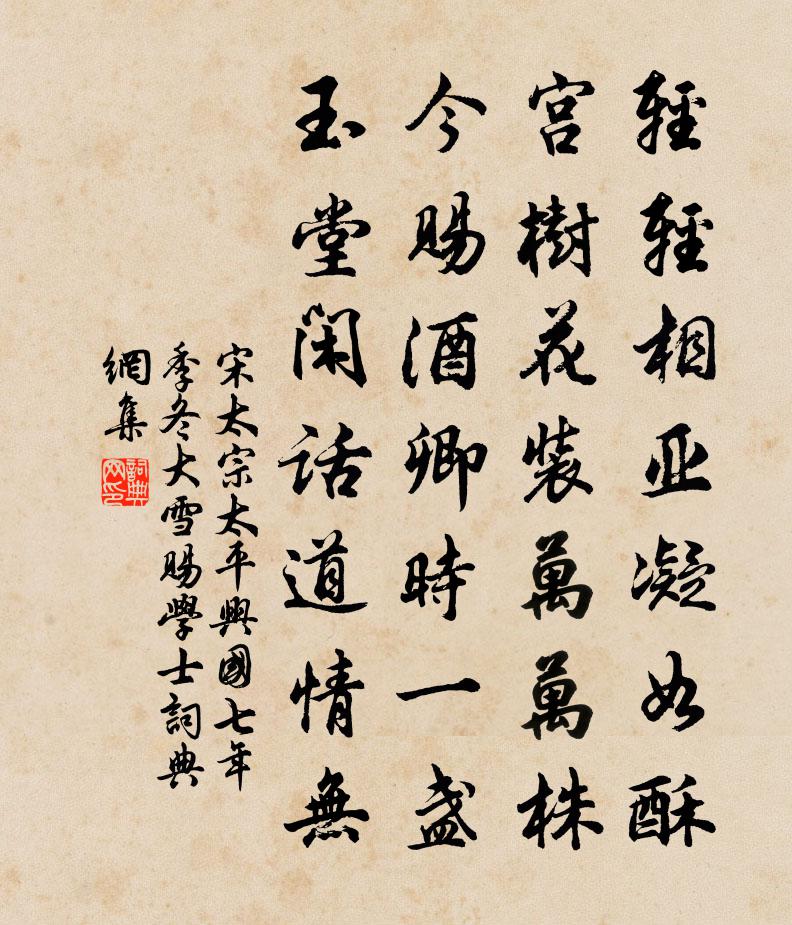 輕輕相亚凝如酥
宮樹花裝萬萬株
今賜酒卿時一盞
玉堂閑話道情無
宋太宗太平興國七年
季冬大雪賜學士詞典
網集
詞典网印